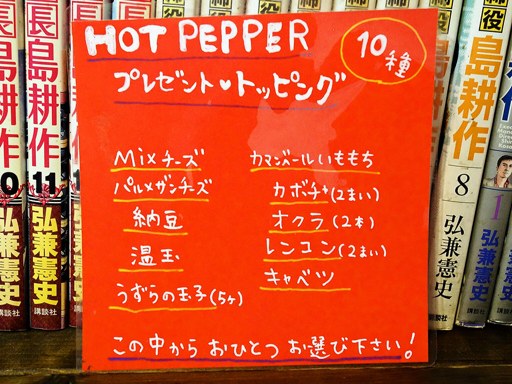 HOT PEPPER
10種
プレゼント♥トッピング
Mixチーズ
パルメザンチーズ
納豆
温玉
うずらの玉子(5ヶ)
カマンベールいももち
カボチャ(2まい)
オクラ(2本)
レンコン(2まい)
キャベツ
この中から おひとつ お選び下さい!
長島耕作
弘兼憲史
講談社
長島耕作
11
弘兼憲史
講談社
取締役
島耕作
8
弘兼憲史
講談社
1